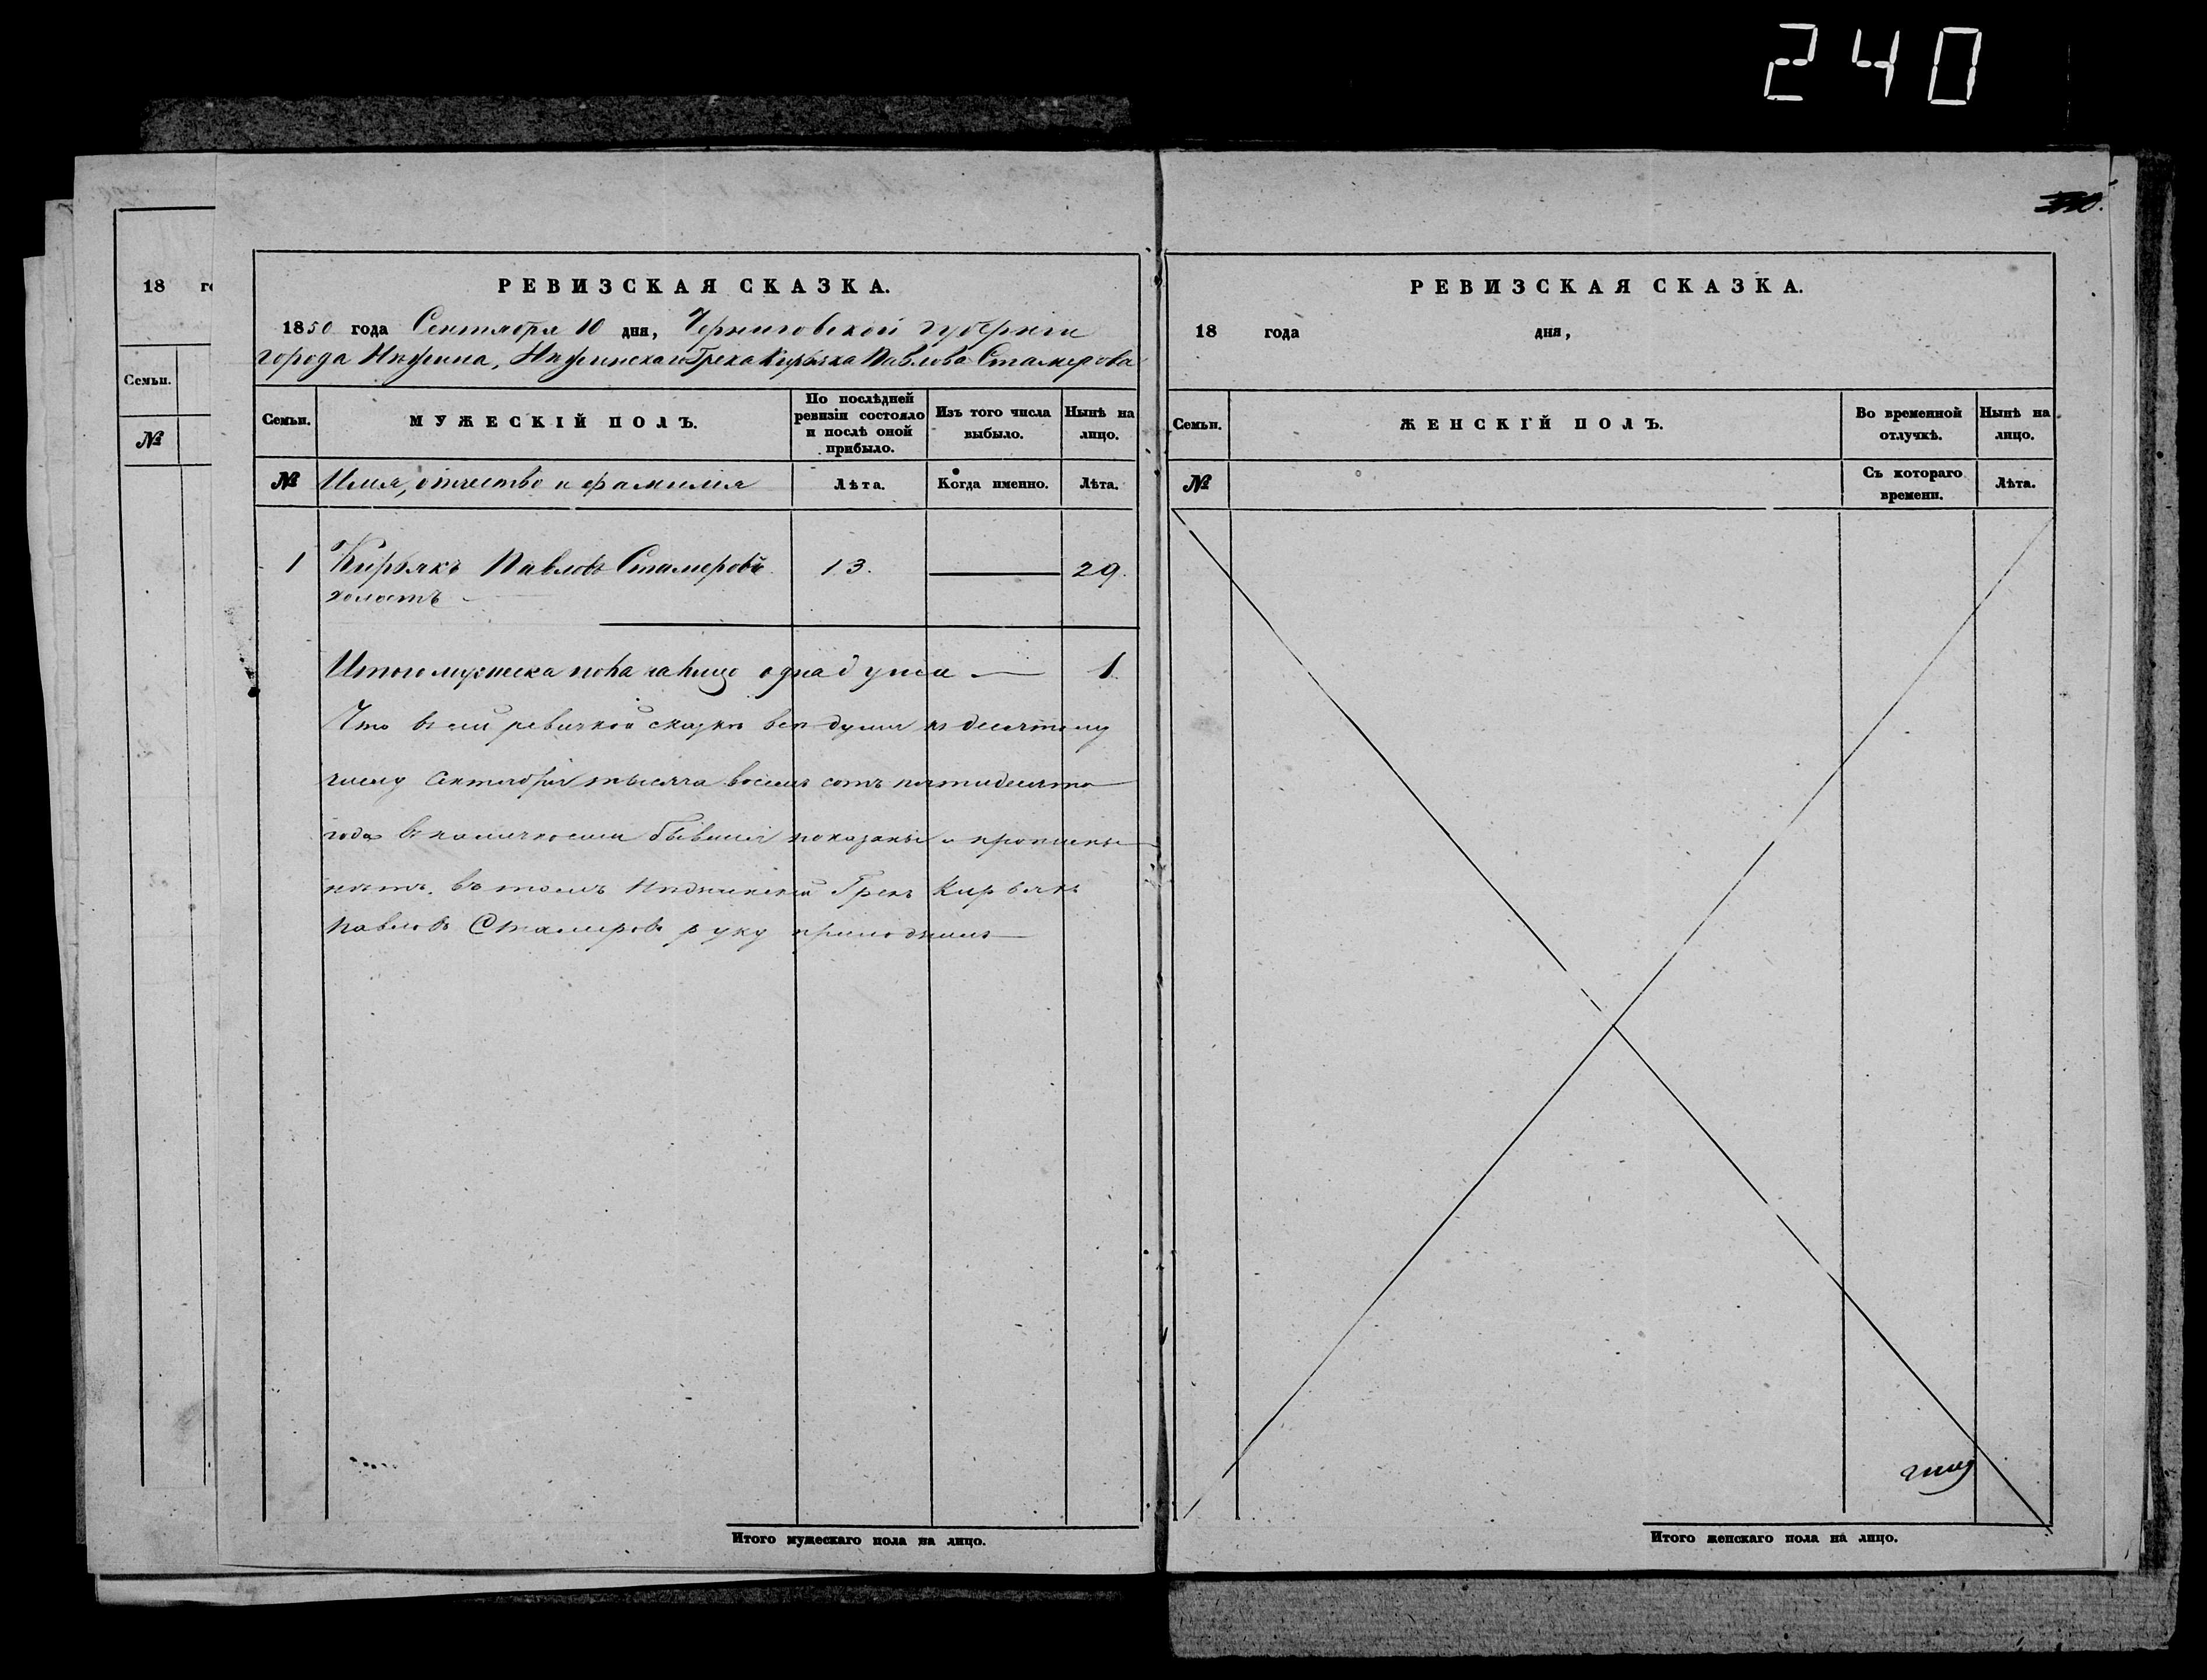 240
18 го
Семьи.
№
РЕВИЗСКАЯ СКАЗКА.
1850 года Сентября 10 дня, Черниговской губерніи
города Нѣжина, Нѣжинскаго Грека Кирьяка Павлова Стамерова
Семьи.
МУЖЕСКІЙ ПОЛЪ.
По послѣдней ревизіи состояло и послѣ оной прибыло.
Изъ того числа выбыло.
Нынѣ на лицо.
№ Имя, отчество и фамилія
Лѣта.
Когда именно.
Лѣта.
1 Кирьякъ Павловъ Стамеровъ 13. 29.
холостъ
Итого мужеска пола на лицо одна душа 1
Что в сей ревизкой сказкѣ всѣ души къ десятому
числу Сентября тысяча восемь сотъ пятидесято
года в наличности бывшія показаны и прописных
нѣтъ. въ томъ Нѣжинскій Грекъ Кирьякъ
Павловъ Стамеровъ руку приложилъ
Итого мужескаго пола на лицо.
РЕВИЗСКАЯ СКАЗКА.
18 года дня,
Семьи.
ЖЕНСКІЙ ПОЛЪ.
Во временной отлучкѣ.
Нынѣ на лицо.
№
Съ котораго времени.
Лѣта.
Итого женскаго пола на лицо.